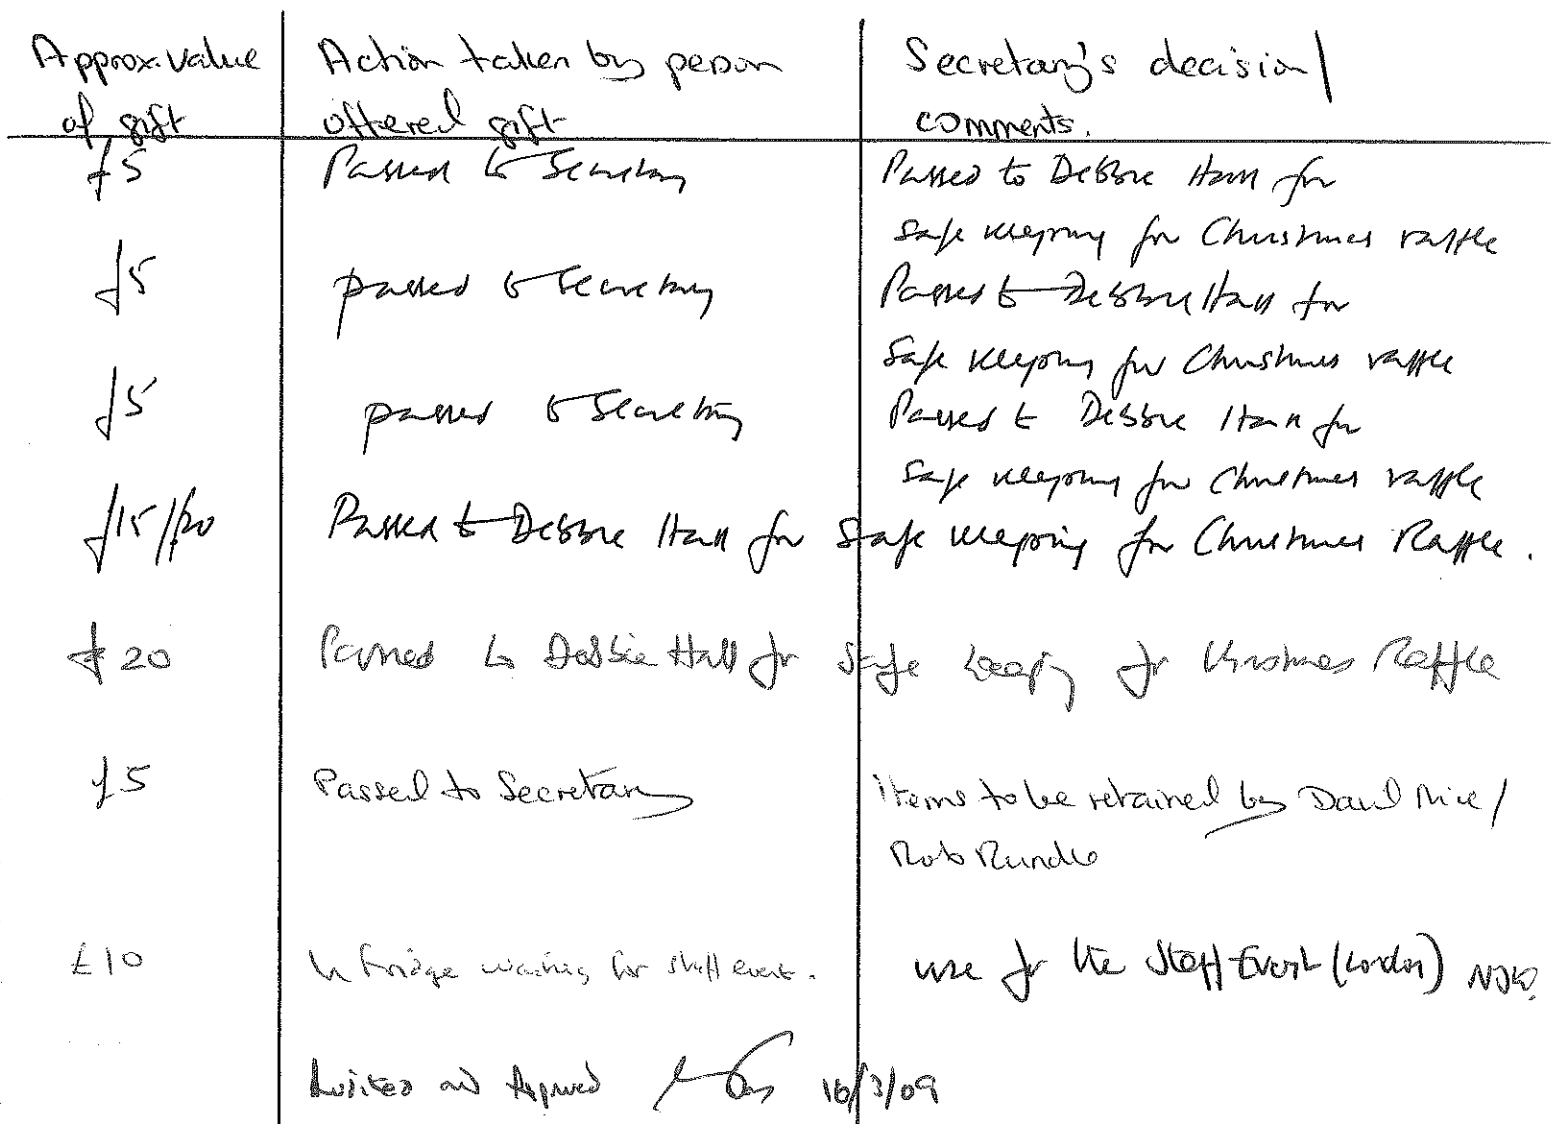 Approx. value Action taken by person Secretary's decision/
of gift offered gift comments.
£5 Passed to Secretary Passed to Debbie Hall for
safe keeping for Christmas raffle
£5 passed to Secretary Passed to Debbie Hall for
safe keeping for Christmas raffle
£5 passed to Secretary Passed to Debbie Hall for
safe keeping for Christmas raffle
£15/£20 Passed to Debbie Hall for safe keeping for Christmas Raffle.
£20 Passed to Debbie Hall for safe keeping for Christmas Raffle
£5 Passed to Secretary items to be retained by David /
Rob Rundle
£10 In fridge waiting for staff event. use for the Staff Event (London)
Audited and Approved 16/3/09